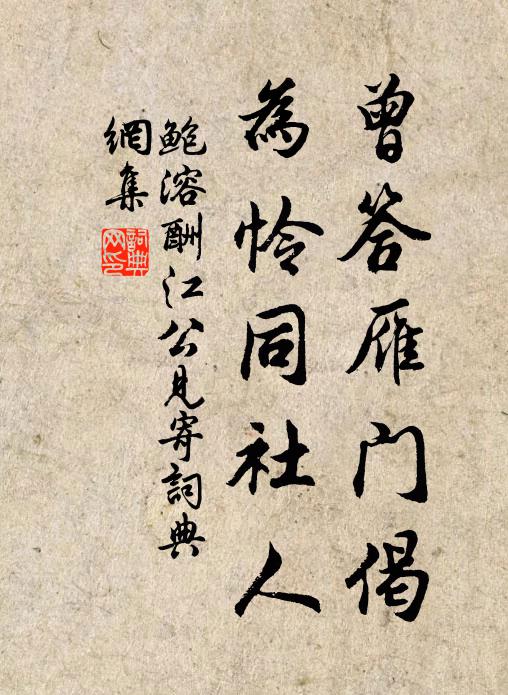 曾答雁门偈
為怜同社人
鲍溶酬江公見寄詞典
網集
詞典
网印